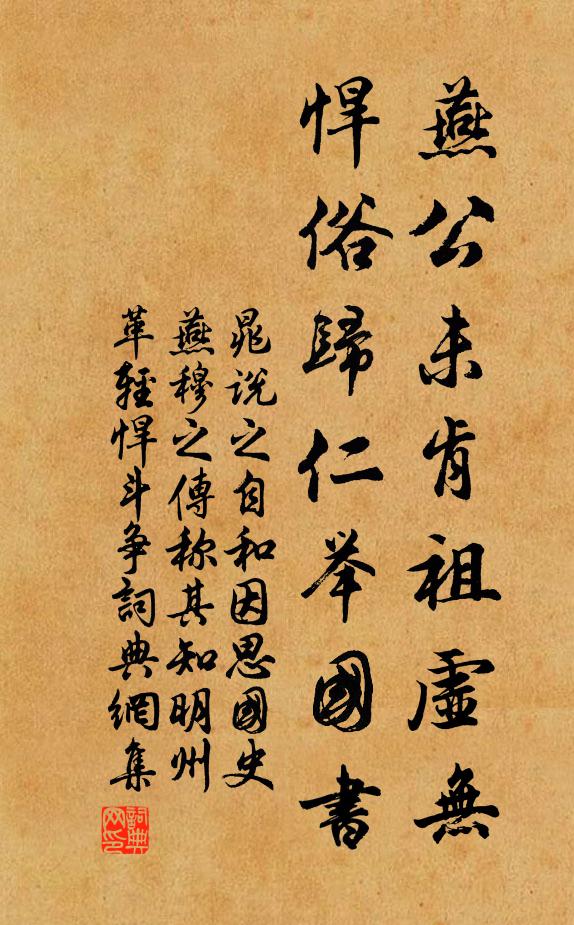 燕公未肯祖虛無
悍俗歸仁举國書
晁说之自和因思國史
燕穆之傳称其知明州
革輕悍斗争詞典網集
詞典网印